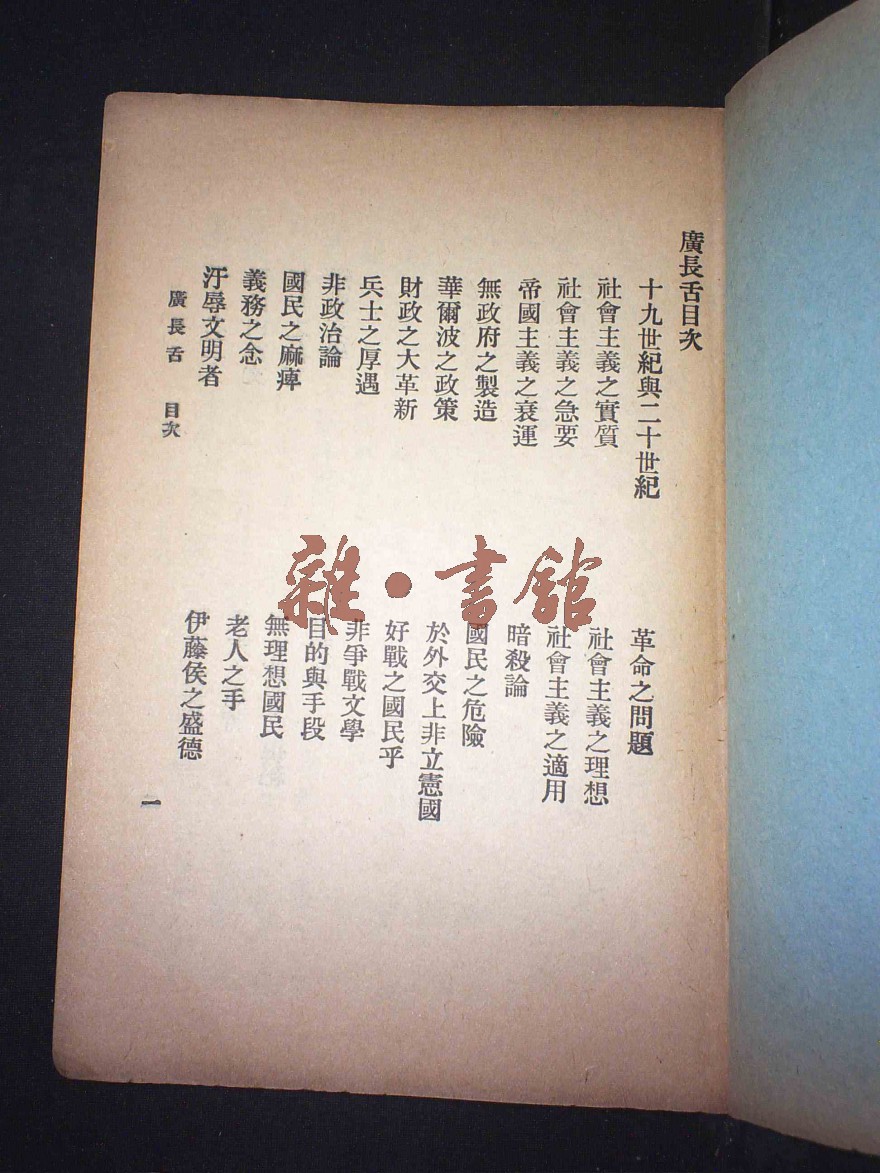 廣長舌目次
十九世紀與二十世紀
革命之問題
社會主義之實質
社會主義之理想
社會主義之急要
社會主義之適用
帝國主義之衰運
暗殺論
無政府之製造
國民之危險
華爾波之政策
於外交上非立憲國
財政之大革新
好戰之國民乎
兵士之厚遇
非爭戰文學
非政治論
目的與手段
國民之麻痺
無理想國民
義務之念
老人之手
汙辱文明者
伊藤侯之盛德
廣長舌 目次
一
雜·書館